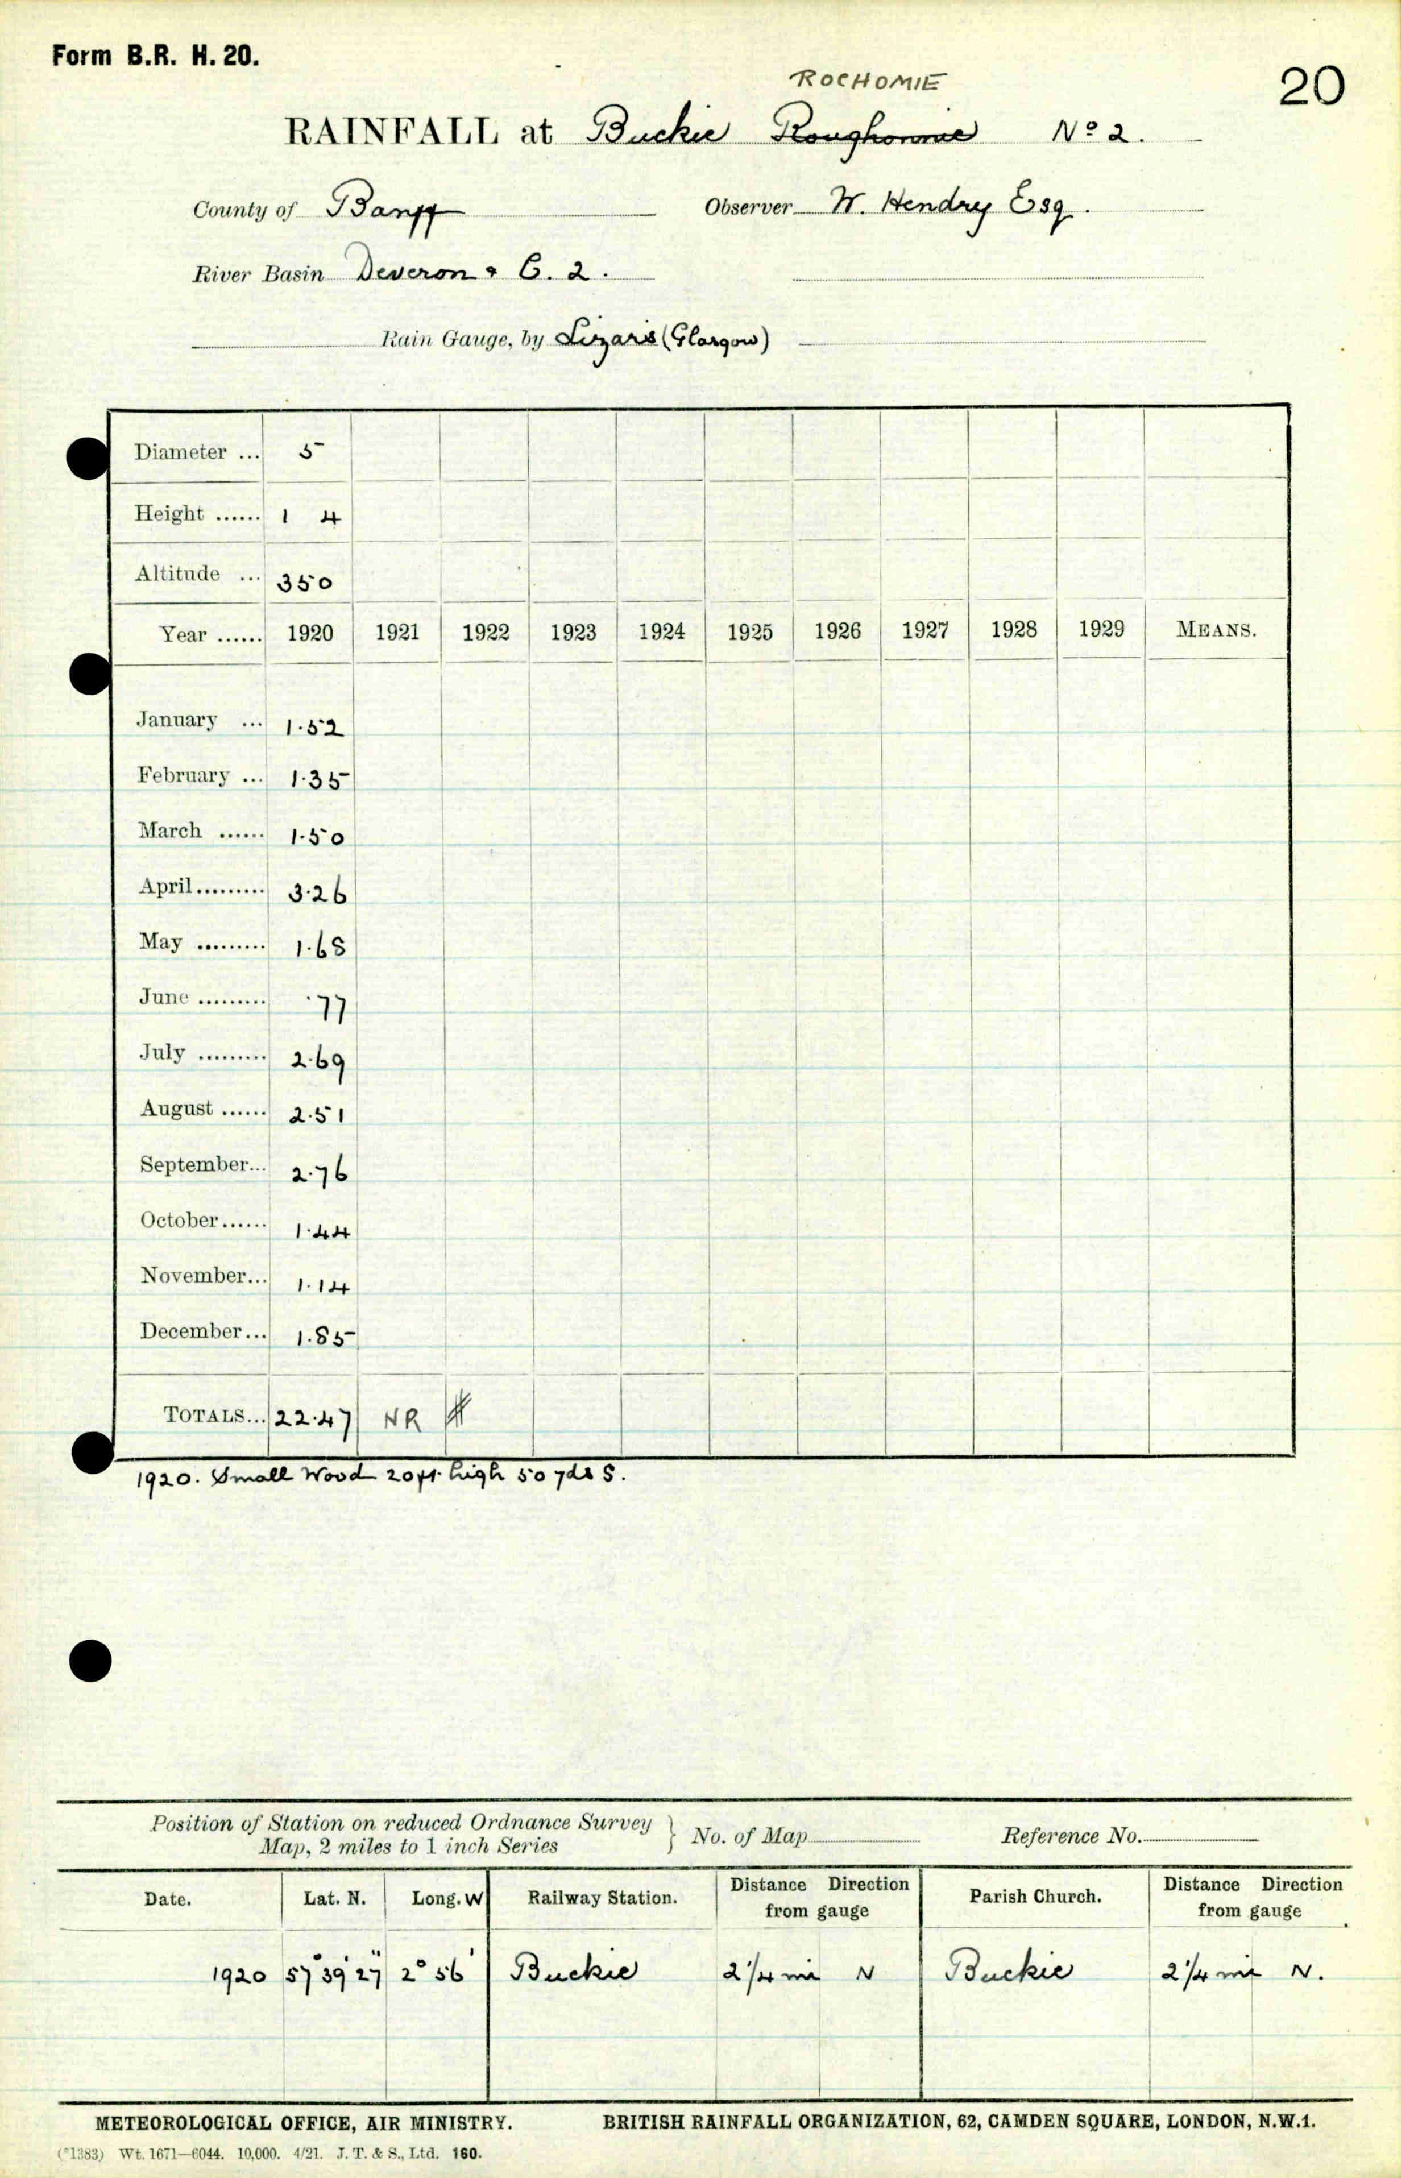 Form B.R. H. 20.
20
ROCHOMIE
RAINFALL at Buckie Roughonnie Nº 2.
County of Banff Observer W. Hendry Esq.
River Basin Deveron & C. 2.
Rain Gauge, by Lizars (Glasgow)
Diameter ... 5
Height ...... 1 4
Altitude ... 350
Year ...... 1920 1921 1922 1923 1924 1925 1926 1927 1928 1929 MEANS.
January ... 1.52
February ... 1.35
March ...... 1.50
April......... 3.26
May ......... 1.68
June ......... .77
July ......... 2.69
August ...... 2.51
September... 2.76
October...... 1.44
November... 1.14
December... 1.85
TOTALS... 22.47 NR
1920. Small Wood 20ft. high 50 yds S.
Position of Station on reduced Ordnance Survey
Map, 2 miles to 1 inch Series } No. of Map Reference No.
Date. Lat. N. Long. W Railway Station. Distance Direction from gauge Parish Church. Distance Direction from gauge
1920 57° 39' 27" 2° 56' Buckie 2¼ mi N Buckie 2¼ mi N.
METEOROLOGICAL OFFICE, AIR MINISTRY. BRITISH RAINFALL ORGANIZATION, 62, CAMDEN SQUARE, LONDON, N.W.1.
(*1383) Wt. 1671—6044. 10,000. 4/21. J. T. & S., Ltd. 160.